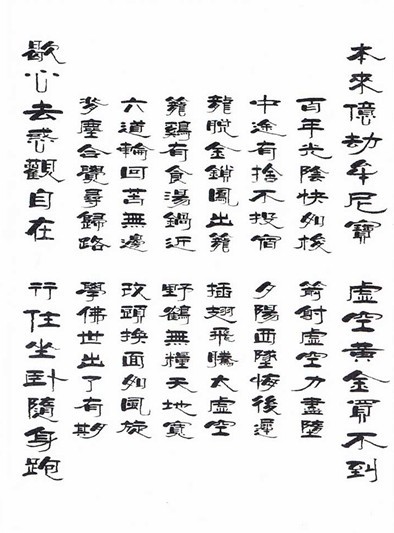 本來億劫牟尼寶 虛空黃金買不到
百年光陰快如梭 箭射虛空力盡墮
中途有捨不投宿 夕陽西墜悔後遲
龍脫金鎖鳳出籠 插翅飛騰太虛空
籠鷄有食湯鍋近 野鶴無糧天地寬
六道輪回苦無邊 改頭換面如風旋
塵合覺尋歸路 學佛世出了有期
歇心去惑觀自在 行住坐臥隨身跑